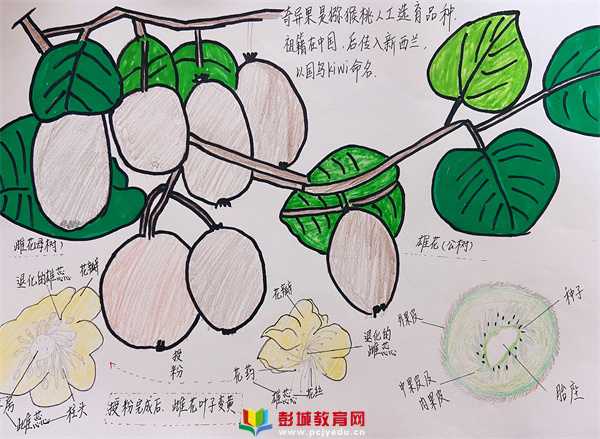 奇异果是猕猴桃人工选育品种,
祖籍在中国,后传入新西兰,
以国鸟kiwi命名.
雌花(母树)
雄花(公树)
退化的雄蕊
花瓣
柱头
雌蕊
授粉
授粉完成后,雌花叶子变黄
花瓣
退化的雌蕊
花药
雄蕊
花丝
外果皮
中果皮及
内果皮
种子
胎座
彭城教育网
www.pcjyedu.cn